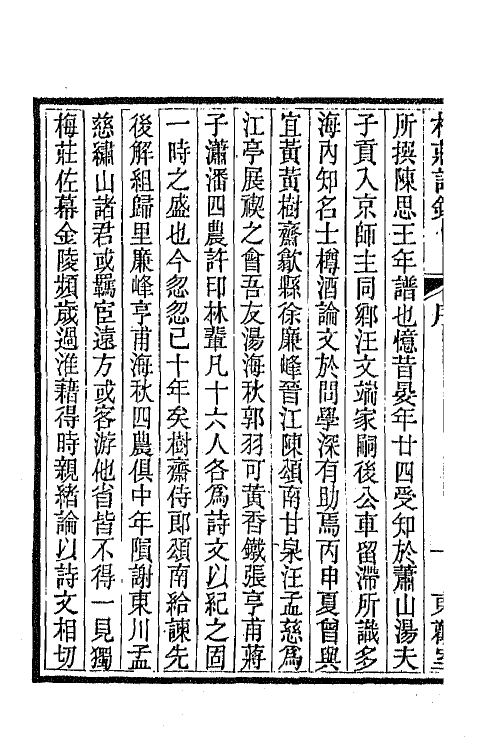 莊詩鈔 序 一
所撰陳思王年譜也憶昔晏年廿四受知於蕭山湯夫
子貢入京師主同鄉汪文端家嗣後公車留滯所識多
海內知名士樽酒論文於問學深有助焉丙申夏曾與
宜黃黃樹齋歙縣徐廉峰晉江陳頌南甘泉汪孟慈爲
江亭展禊之會吾友湯海秋郭羽可黃香鐵張亨甫蔣
子瀟潘四農許印林輩凡十六人各爲詩文以紀之固
一時之盛也今忽忽已十年矣樹齋侍郎頌南給諫先
後解組歸里廉峰亨甫海秋四農俱中年隕謝東川孟
慈繡山諸君或羈宦遠方或客游他省皆不得一見獨
梅莊佐幕金陵頻歲過淮藉得時親緒論以詩文相切